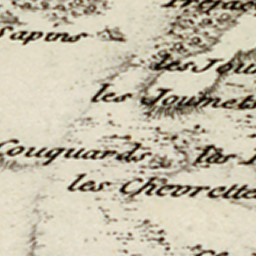 Sapins
les Jou
les Journets
Couquards
les Chevrette